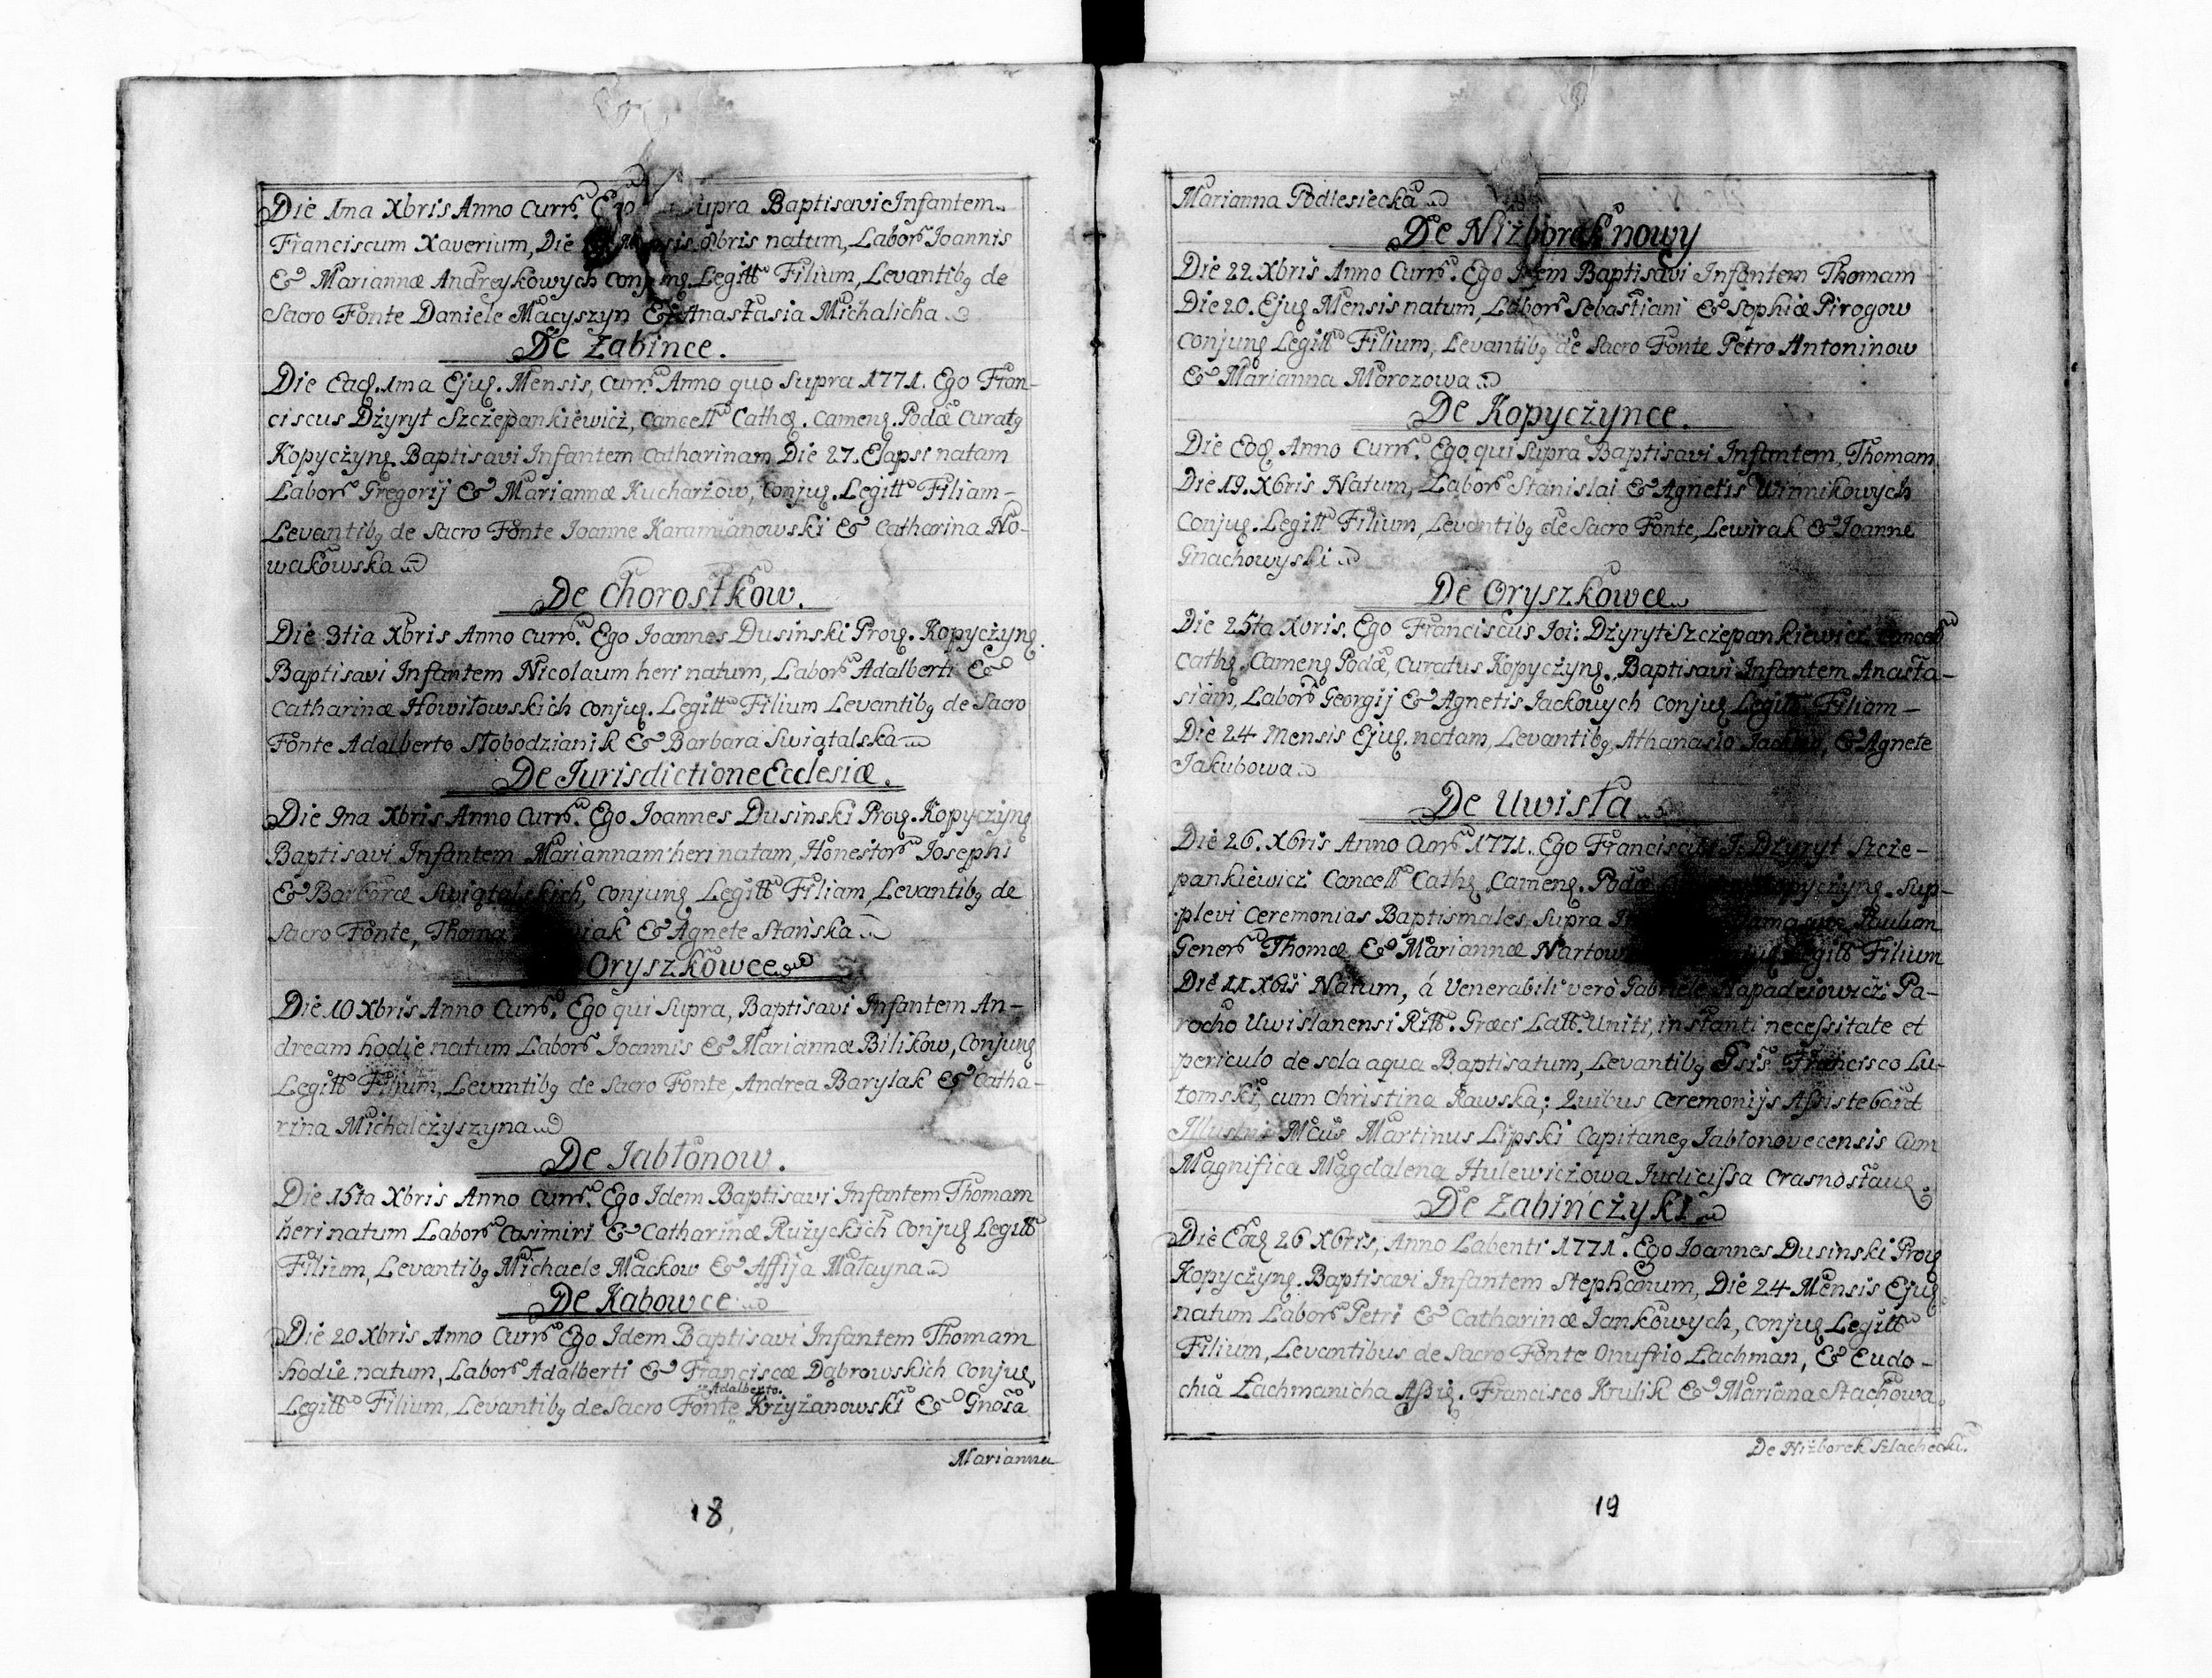 Die 1ma Xbris Anno Curr. Ego supra Baptisavi Infantem
Franciscum Xaverium, Die Mensis 8bris natum, Labor Joannis
& Mariannæ Andreykowych Legitt Filium, Levantibq de
Sacro Fonte Daniele Macyszyn & Anastasia Michalicha
De Żabince.
Die Eadq. 1ma Ejuq. Mensis, Curr. Anno quo Supra 1771. Ego Fran-
ciscus Dżyryt Szczepankiewicż, Cancell Cathq. Camenq. Podæ Curatq
Kopyczynq Baptisavi Infantem Catharinam Die 27. Elapsi natam
Labor Gregorij & Mariannæ Kucharżow, Conjuq. Legitt Filiam-
Levantibq de Sacro Fonte Joanne Karamianowski & Catharina No-
wakowska
De Chorostkow.
Die 3tia Xbris Anno Curr. Ego Joannes Dusinski Proq. Kopyczynq.
Baptisavi Infantem Nicolaum heri natum, Labor Adalberti &
Catharinæ Howitowskich Conjuq. Legitt Filium Levantibq de Sacro
Fonte Adalberto Słobodzianik & Barbara Swiątalska
De Jurisdictione Ecclesiæ.
Die 9na Xbris Anno Curr. Ego Joannes Dusinski Proq. Kopyczynq
Baptisavi Infantem Mariannam heri natam, Honestor Josephi
& Barbaræ Swiątalskich, Conjunq Legitt Filiam, Levantibq de
Sacro Fonte, Thoma & Agnete Stańska
Oryszkowce
Die 10 Xbris Anno Curr. Ego qui Supra, Baptisavi Infantem An-
dream hodie natum Labor Joannis & Mariannæ Bilikow, Conjunq
Legitt Filium, Levantibq de Sacro Fonte, Andrea Barylak & Catha-
rina Michalczyszyna
De Jabłonow.
Die 15ta Xbris Anno Curr. Ego Idem Baptisavi Infantem Thomam
heri natum Labor Casimiri & Catharinæ Rużyckich Conjuq Legitt
Filium, Levantibq Michaele Mackow & Affija Małayna
De Kabowce
Die 20 Xbris Anno Curr Ego Idem Baptisavi Infantem Thomam
hodie natum, Labor Adalberti & Franciscæ Dąbrowskich Conjuq,
Adalberto.
Legitt Filium, Levantibq de Sacro Fonte Krżyżanowski & Gnosa
Marianna
18
Marianna Podlesiecka
De Niżborek nowy
Die 22 Xbris Anno Curr. Ego Idem Baptisavi Infantem Thomam
Die 20. Ejuq Mensis natum, Labor Sebastiani & Sophiæ Pirogow
Conjunq Legitt Filium, Levantibq de Sacro Fonte Petro Antoninow
& Marianna Morozowa
De Kopyczynce.
Die Eoq. Anno Curr. Ego qui Supra Baptisavi Infantem, Thomam
Die 19. Xbris Natum, Labor Stanislai & Agnetis Winnikowych
Conjuq. Legitt Filium, Levantibq de Sacro Fonte, Lewirak & Joanne
Gnachowyski
De Oryszkowce
Die 25ta Xbris. Ego Franciscus Joi: Dżyryt Szczepankiewicz Cancell
Cathq. Camenq Podæ, Curatus Kopyczynq. Baptisavi Infantem Anasta-
siam, Labor Georgij & Agnetis Jackowych Conjuq Legitt Filiam-
Die 24 Mensis Ejuq. natam, Levantibq Athanasio & Agnete
Jakubowa
De Uwisła
Die 26. Xbris Anno Curr 1771. Ego Franciscus J. Dżyryt Szcze-
pankiewicz Cancell Cathq Camenq. Podæ Kopyczynq. Sup-
plevi Ceremonias Baptismales, Supra
Gener Thomæ & Mariannæ Legitt Filium
Die 11 Xbris Natum, á Venerabili verò Gabriele Napadeiowicż Pa-
rocho Uwislanensi Ritt. Græci Latt. Uniti, instanti necessitate et
periculo de sola aqua Baptisatum, Levantibq Francisco Lu-
tomski, cum Christina Rawska; Quibus Ceremonijs Assistebant
Martinus Lipski Capitaneq Jabłonovecensis Cum
Magnifica Magdalena Hulewiczowa Judicissa Crasnostauq
De Żabinćżyki
Die Eaq 26 Xbris, Anno Labenti 1771. Ego Joannes Dusinski Proq
Kopyczynq. Baptisavi Infantem Stephanum, Die 24 Mensis Ejuq
natum Labor Petri & Catharinæ Jankowych, Conjuq Legitt
Filium, Levantibus de Sacro Fonte Onufrio Lachman, & Eudo-
chia Lachmanicha Assiq. Francisco Krulik & Mariana Stachowa
De Niżborek Szlachecki.
19